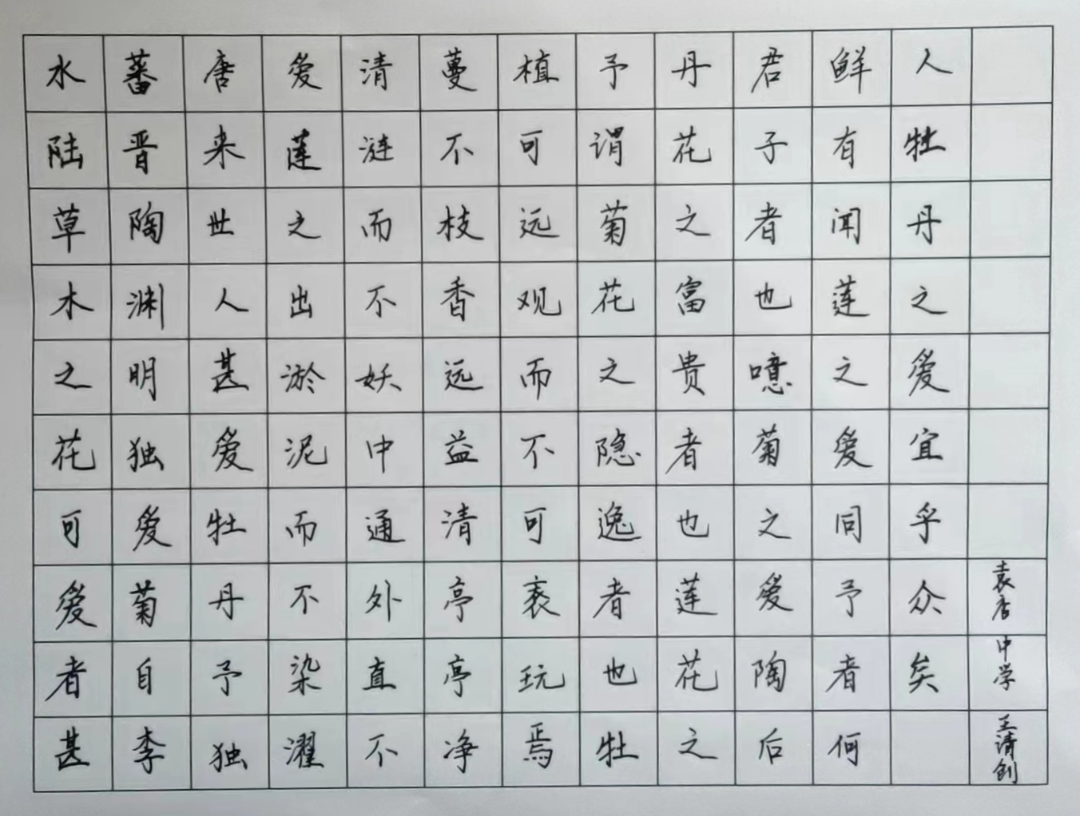 水陆草木之花可爱者甚
蕃晋陶渊明独爱菊自李
唐来世人甚爱牡丹予独
爱莲之出淤泥而不染濯
清涟而不妖中通外直不
蔓不枝香远益清亭亭净
植可远观而不可亵玩焉
予谓菊花之隐逸者也牡
丹花之富贵者也莲花之
君子者也噫菊之爱陶后
鲜有闻莲之爱同予者何
人牡丹之爱宜乎众矣
袁店中学王清创